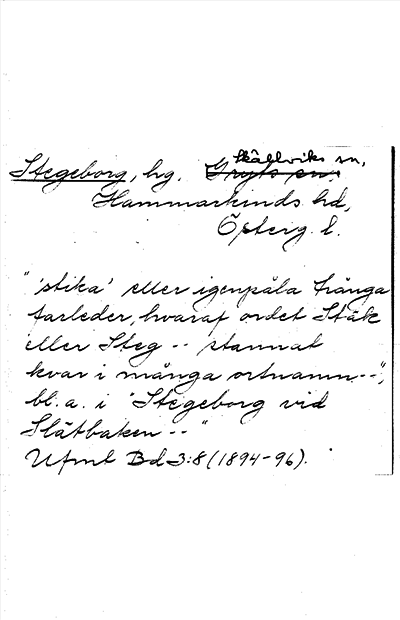 Skällviks sn,
Stegeborg, hg. Gryts sn.
Hammarkinds hd,
Österg. l.
"'stika' eller igenpåla trånga
farleder, hvaraf ordet Stäk
eller Steg -- stannat
kvar i många ortnamn --",
bl. a. i "Stegeborg vid
Slätbaken --"
Ufmt Bd 3:8 (1894-96).